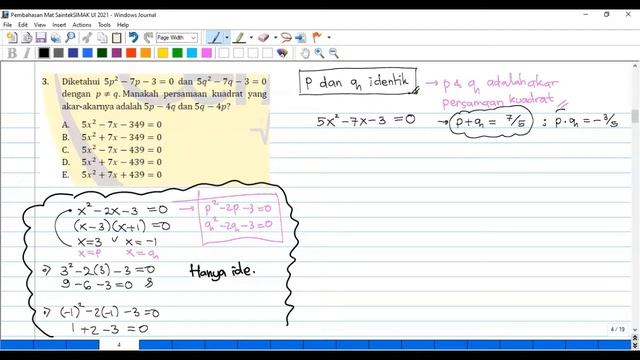 Pembahasan Mat SaintekSIMAK UI 2021 - Windows Journal
File Edit View Insert Actions Tools Help
Page Width
B
3. Diketahui 5p² − 7p − 3 = 0 dan 5q² − 7q − 3 = 0
dengan p ≠ q. Manakah persamaan kuadrat yang
akar-akarnya adalah 5p − 4q dan 5q − 4p?
A. 5x² − 7x − 349 = 0
B. 5x² + 7x − 349 = 0
C. 5x² − 7x − 439 = 0
D. 5x² + 7x − 439 = 0
E. 5x² + 7x + 439 = 0
P dan q identik
→ p & q adalah akar
persamaan kuadrat
5x² − 7x − 3 = 0 → p + q = 7/5 ; p · q = −3/5
x² − 2x − 3 = 0 → p² − 2p − 3 = 0
(x − 3)(x + 1) = 0 q² − 2q − 3 = 0
x = 3 ∨ x = −1
x = p x = q
⇒ 3² − 2(3) − 3 = 0
9 − 6 − 3 = 0
Hanya ide.
⇒ (−1)² − 2(−1) − 3 = 0
1 + 2 − 3 = 0
4 / 19
4